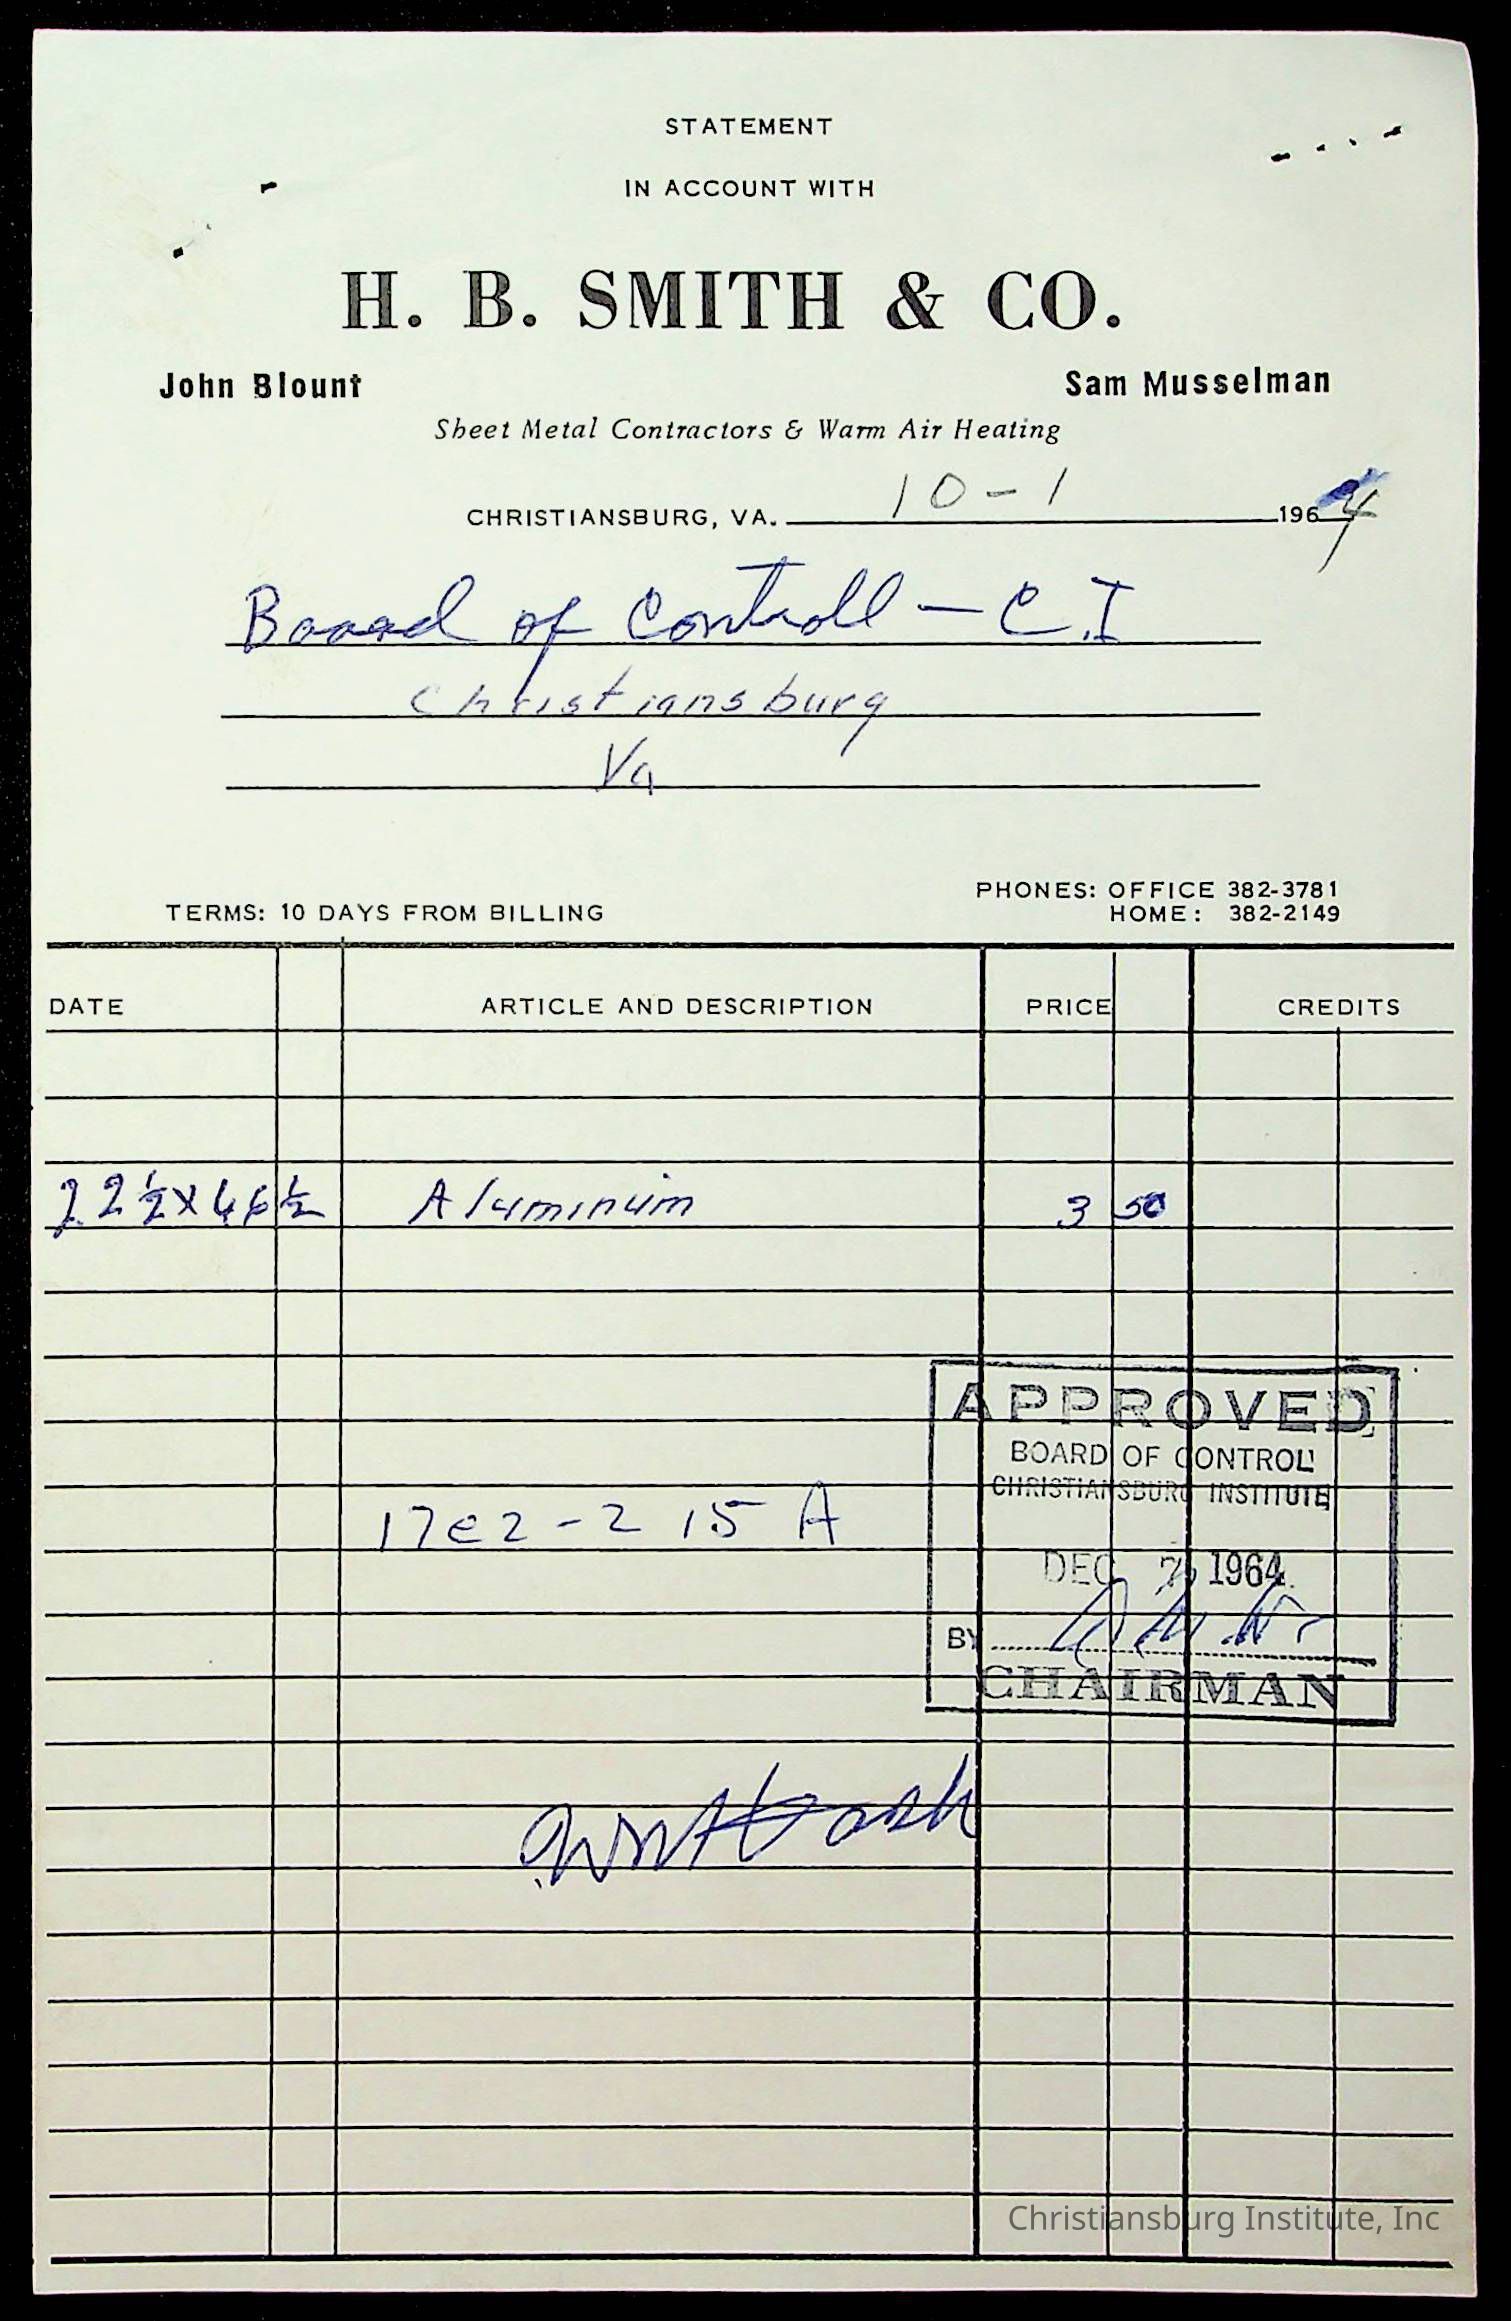 STATEMENT
IN ACCOUNT WITH
H. B. SMITH & CO.
John Blount Sam Musselman
Sheet Metal Contractors & Warm Air Heating
CHRISTIANSBURG, VA. 10-1 1964
Board of Controll - C.I
Christiansburg
Va
PHONES: OFFICE 382-3781
TERMS: 10 DAYS FROM BILLING HOME: 382-2149
DATE ARTICLE AND DESCRIPTION PRICE CREDITS
22½x46½ Aluminum 3 50
APPROVED
BOARD OF CONTROL
CHRISTIANSBURG INSTITUTE
17e2-215 A
DEC 7 1964
BY
CHAIRMAN
Christiansburg Institute, Inc